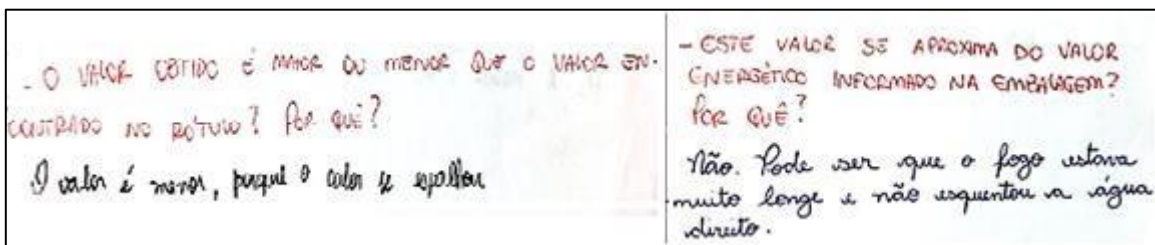 - O VALOR OBTIDO É MAIOR OU MENOR QUE O VALOR EN-
CONTRADO NO RÓTULO? POR QUÊ?
O valor é menor, porque o calor se espalhou
- ESTE VALOR SE APROXIMA DO VALOR
ENERGÉTICO INFORMADO NA EMBALAGEM?
POR QUÊ?
Não. Pode ser que o fogo estava
muito longe e não esquentou a água
direito.